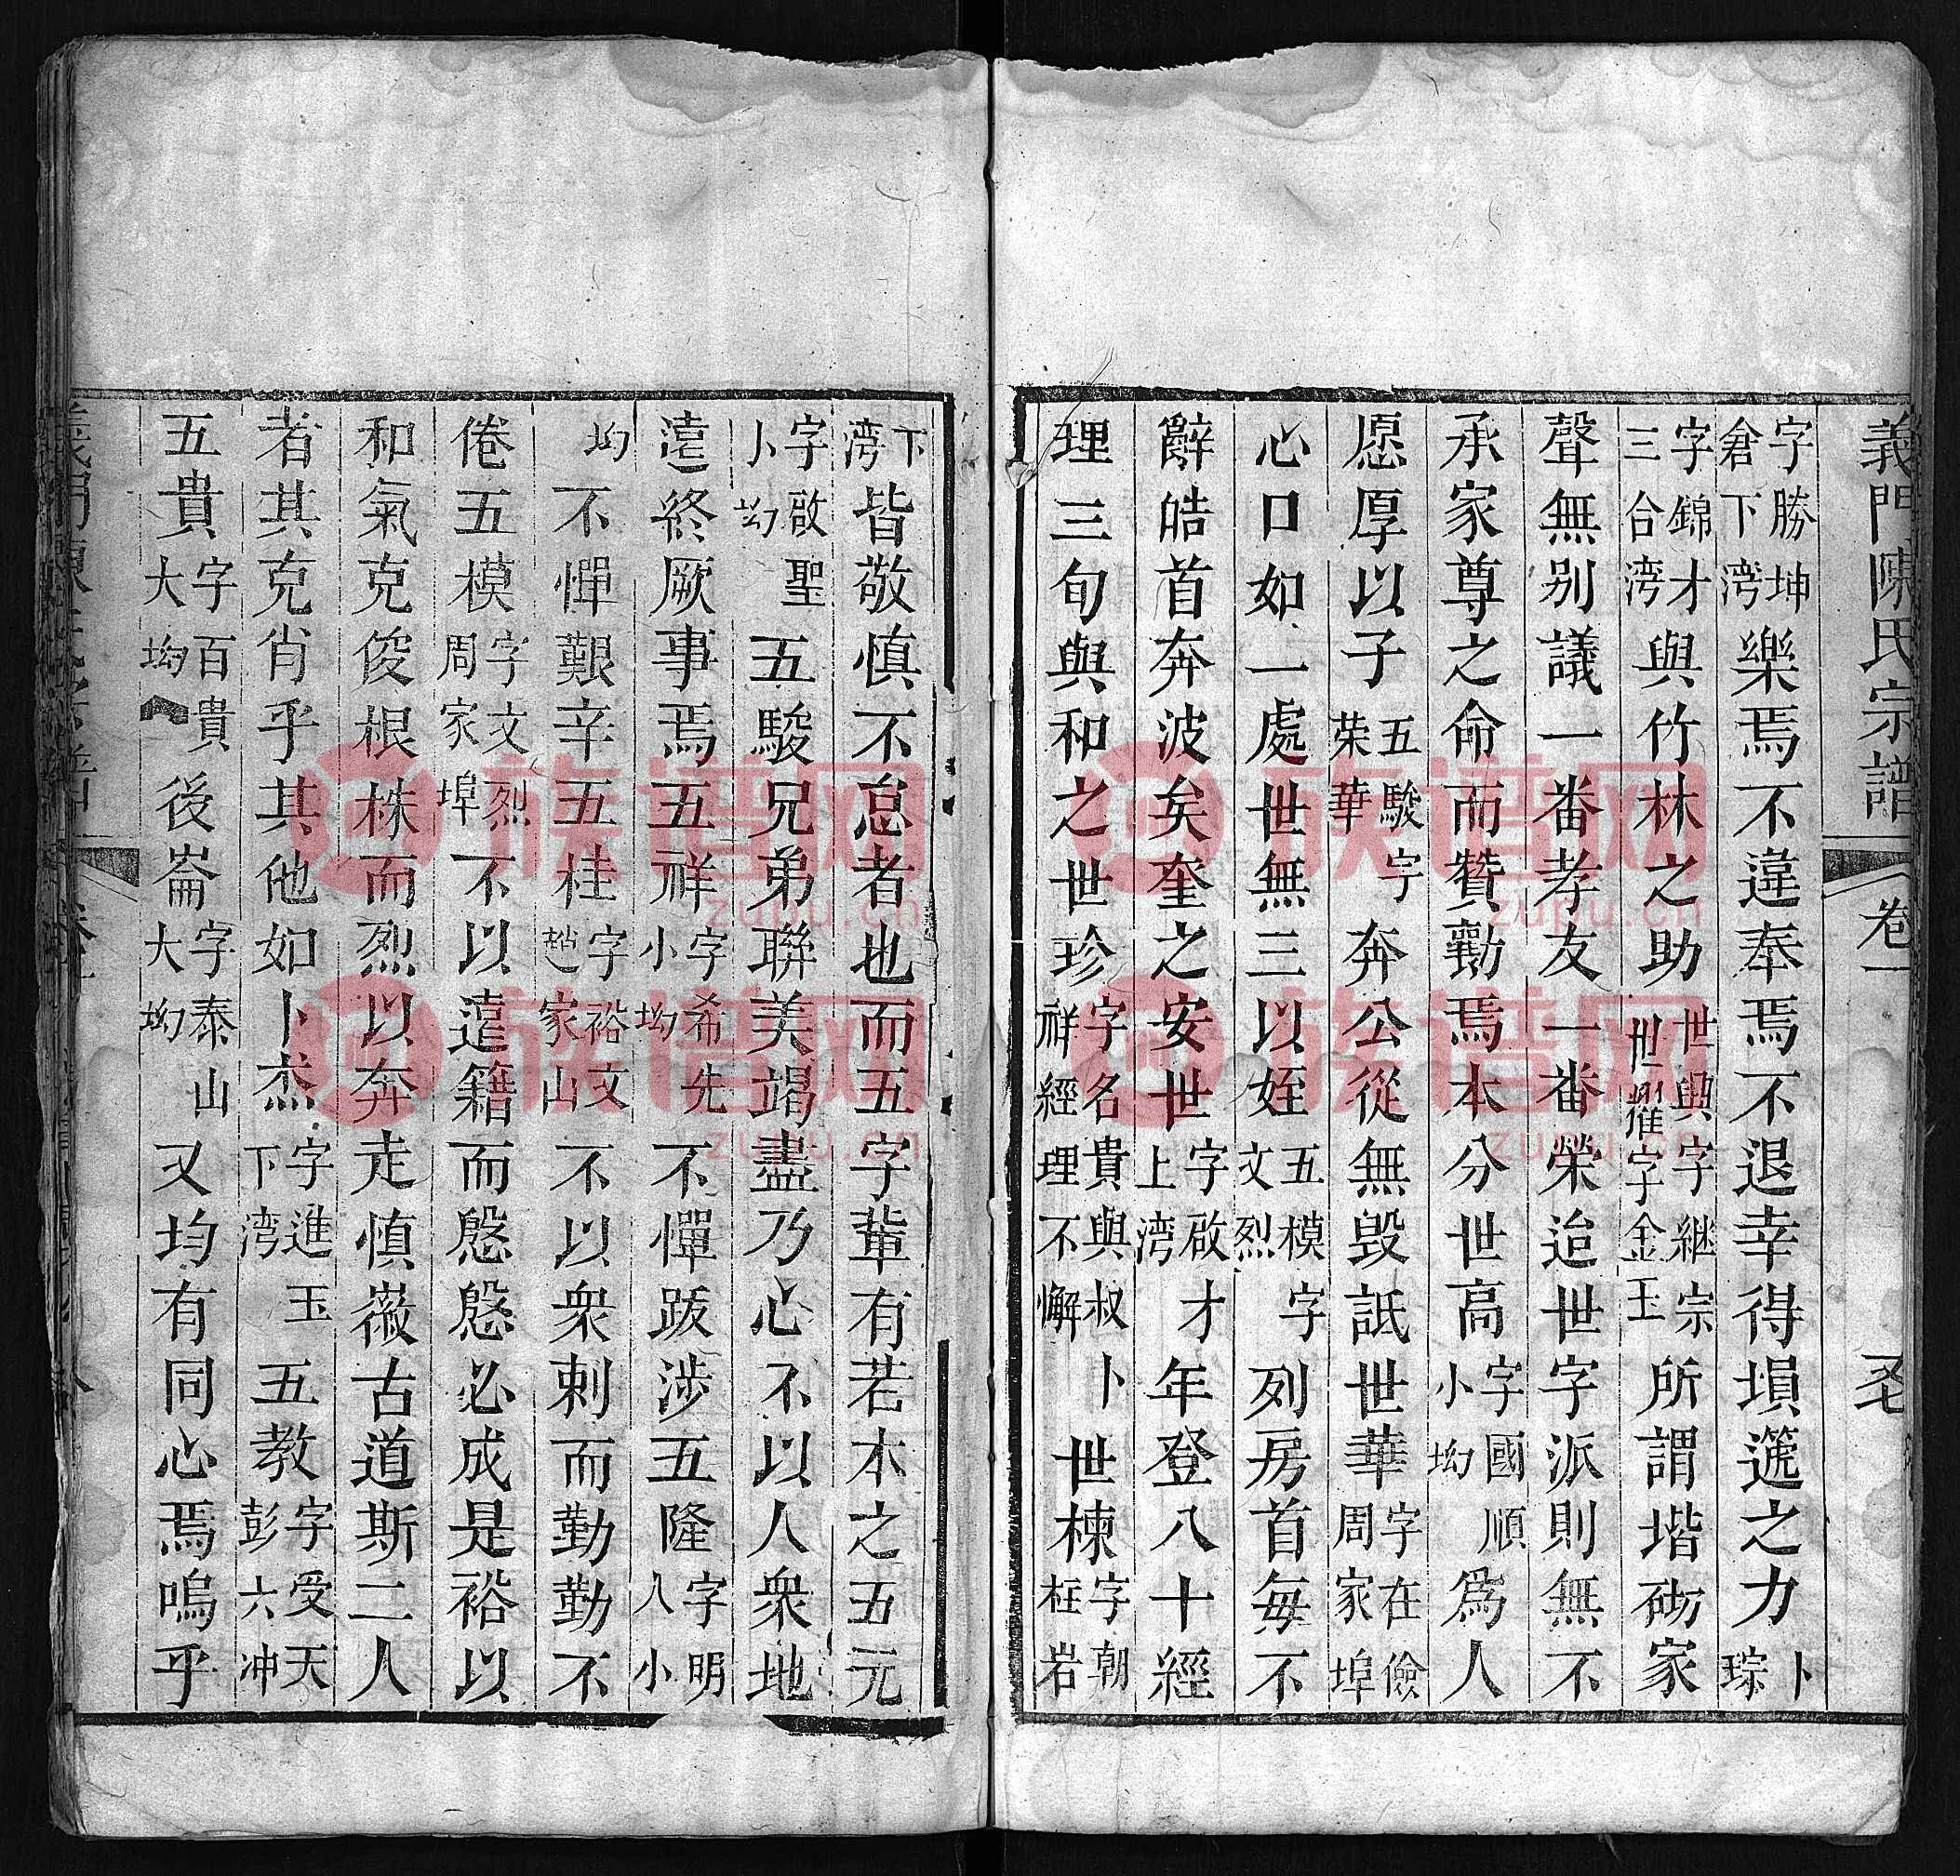 義門陳氏宗譜 卷一
字勝坤倉下灣樂焉不違奉焉不退幸得塤篪之力卜琮
字錦才三合灣與竹林之助世興字継宗世耀字金玉所謂堦砌家
聲無別議一番孝友一番榮迨世字派則無不
承家尊之命而贊勷焉本分世高字國順小坳為人
愿厚以子五駿字荣華奔公從無毀詆世華字在儉周家埠
心口如一處世無三以姪五模字文烈列房首每不
辭皓首奔波矣奎之安世字啟才上湾年登八十經
理三旬與和之世珍字名貴與叔卜祥經理不懈世棟字朝枉岩
下湾皆敬慎不怠者也而五字輩有若本之五元
字啟聖卜坳五駿兄弟聯美竭盡乃心不以人衆地
遠終厥事焉五祥字希先小坳不憚跋涉五隆字明八小
坳不憚艱辛五桂字裕文趙家山不以衆剌而勤勤不
倦五模字文烈周家埠不以遠籍而慇慇必成是裕以
和氣克俊根株而烈以奔走慎薇古道斯二人
者其克肖乎其他如卜杰字進玉下湾五教字受天彭六冲
五貴字百貴大坳後崙字泰山大坳又均有同心焉嗚乎
義門陳氏宗譜 卷一
族谱网
zupu.cn
族谱网
zupu.cn
族谱网
zupu.cn
族谱网
zupu.cn